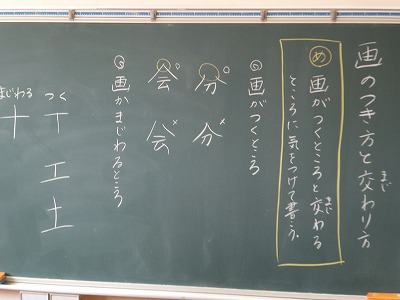 画のつき方と交わり方
まじ
め 画がつくところと交わる
まじ
ところに気をつけて書う。
◎画がつくところ
分○ 分×
会○ 会×
◎画がまじわるところ
つく
丅 工 土
まじわる
十